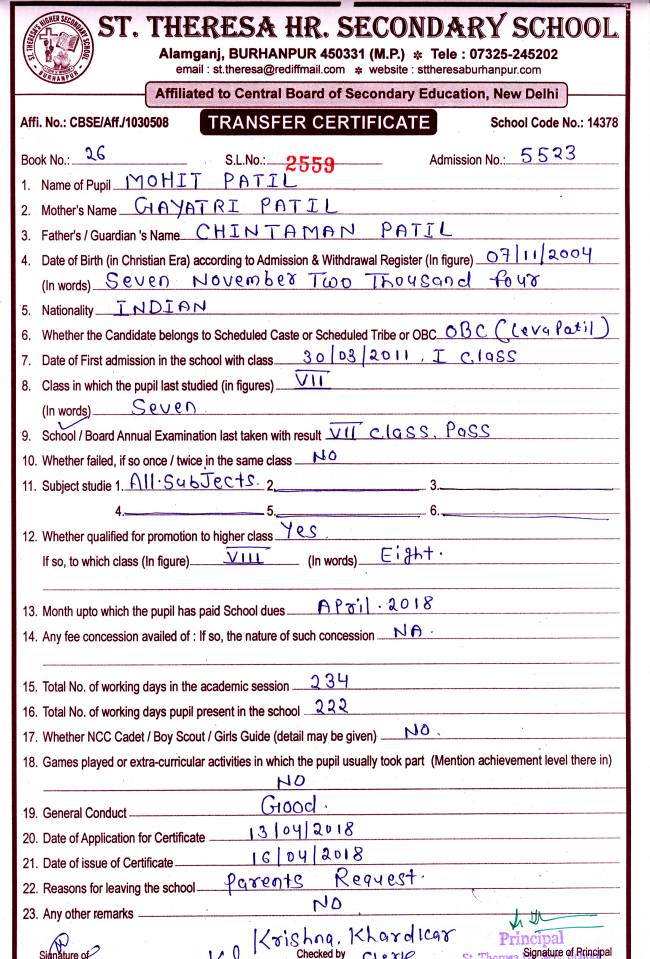 ST. THERESA'S HIGHER SECONDARY SCHOOL
BURHANPUR
ST. THERESA HR. SECONDARY SCHOOL
Alamganj, BURHANPUR 450331 (M.P.) * Tele : 07325-245202
email : st.theresa@rediffmail.com * website : sttheresaburhanpur.com
Affiliated to Central Board of Secondary Education, New Delhi
Affi. No.: CBSE/Aff./1030508 TRANSFER CERTIFICATE School Code No.: 14378
Book No.: 26 S.L.No.: 2559 Admission No.: 5523
1. Name of Pupil MOHIT PATIL
2. Mother's Name GAYATRI PATIL
3. Father's / Guardian 's Name CHINTAMAN PATIL
4. Date of Birth (in Christian Era) according to Admission & Withdrawal Register (In figure) 07/11/2004
(In words) Seven November Two Thousand four
5. Nationality INDIAN
6. Whether the Candidate belongs to Scheduled Caste or Scheduled Tribe or OBC OBC (Leva Patil)
7. Date of First admission in the school with class 30/03/2011, I class
8. Class in which the pupil last studied (in figures) VII
(In words) Seven
9. School / Board Annual Examination last taken with result VII class. Pass
10. Whether failed, if so once / twice in the same class NO
11. Subject studie 1. All.Subjects. 2. 3.
4. 5. 6.
12. Whether qualified for promotion to higher class Yes
If so, to which class (In figure) VIII (In words) Eight.
13. Month upto which the pupil has paid School dues April. 2018
14. Any fee concession availed of : If so, the nature of such concession NA.
15. Total No. of working days in the academic session 234
16. Total No. of working days pupil present in the school 222
17. Whether NCC Cadet / Boy Scout / Girls Guide (detail may be given) NO.
18. Games played or extra-curricular activities in which the pupil usually took part (Mention achievement level there in)
NO
19. General Conduct Good.
20. Date of Application for Certificate 13/04/2018
21. Date of issue of Certificate 16/04/2018
22. Reasons for leaving the school Parents Request.
23. Any other remarks NO
Krishna. Khardicar Principal
Signature of Checked by Clerk Signature of Principal